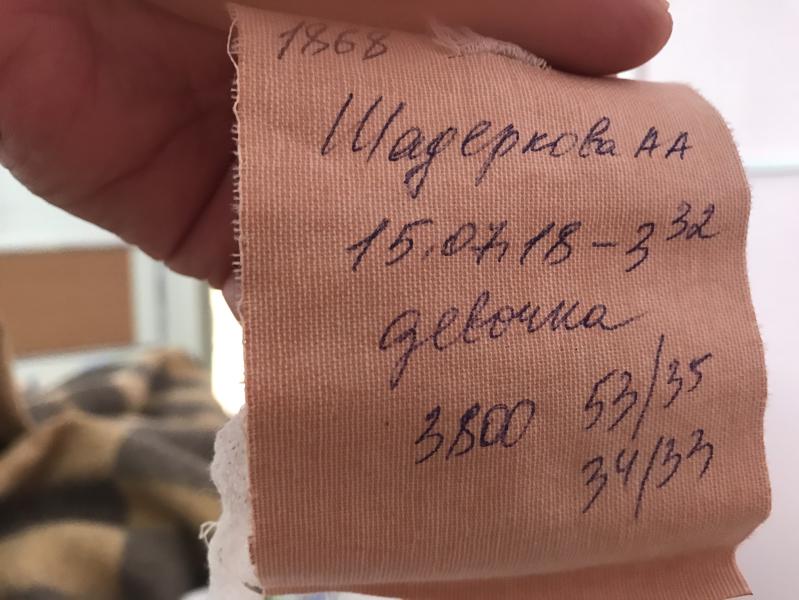 1868
Шадеркова А А
15.07.18 – 3 32
девочка
3800 53/35
34/33